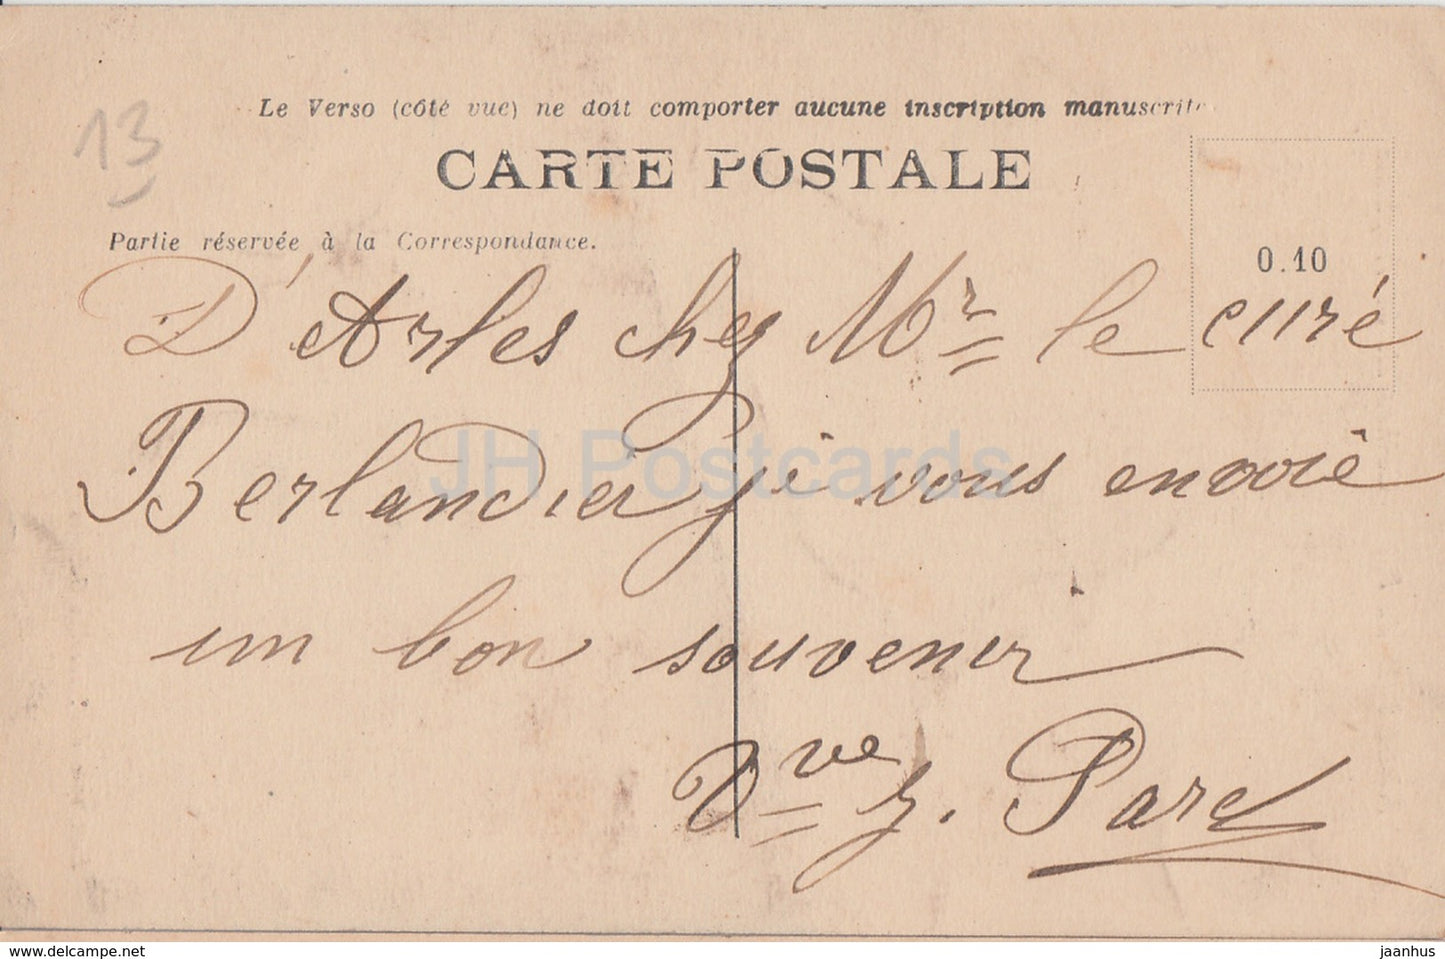 13
Le Verso (côté vue) ne doit comporter aucune inscription manuscrite.
CARTE POSTALE
Partie réservée à la Correspondance.
0.10
D'Arles chez Mr le curé
Berlandier je vous envoie
un bon souvenir
Vve J. Parel
JH Postcards
www.delcampe.net
jaanhus